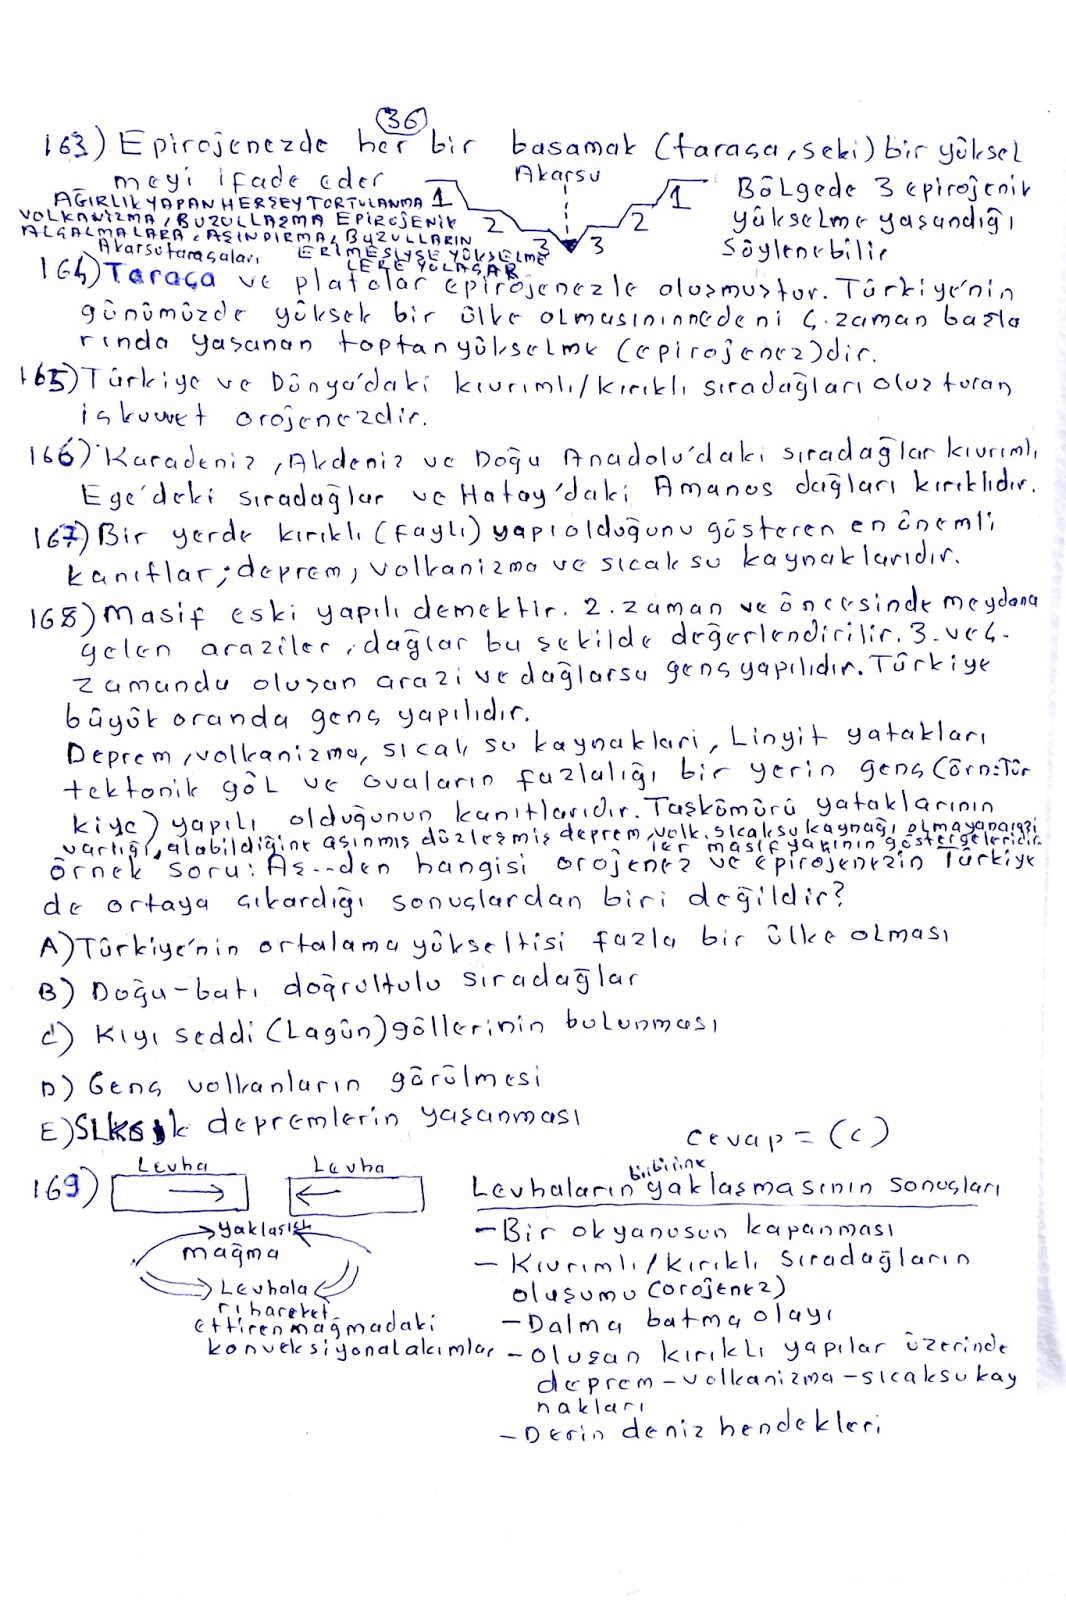 36
163) Epirojenezde her bir basamak (taraça, seki) bir yüksel
meyi ifade eder
Akarsu
1 2 3 3 2 1
Bölgede 3 epirojenik
yükselme yaşandığı
söylenebilir
AĞIRLIK YAPAN HERŞEY TORTULANMA
VOLKANİZMA, BUZULLAŞMA EPİROJENİK
ALÇALMALARA, AŞINDIRMA, BUZULLARIN
ERİMESİYSE YÜKSELME
LERE YOLAÇAR
Akarsu taraçaları
164) Taraça ve platolar epirojenezle oluşmuştur. Türkiye'nin
günümüzde yüksek bir ülke olmasının nedeni 4. zaman başla
rında yaşanan toptan yükselme (epirojenez)dir.
165) Türkiye ve Dünya'daki kıvrımlı/kırıklı sıradağları oluşturan
iç kuvvet orojenezdir.
166) Karadeniz, Akdeniz ve Doğu Anadolu'daki sıradağlar kıvrımlı,
Ege'deki sıradağlar ve Hatay'daki Amanos dağları kırıklıdır.
167) Bir yerde kırıklı (faylı) yapı olduğunu gösteren en önemli
kanıtlar; deprem, volkanizma ve sıcak su kaynaklarıdır.
168) Masif eski yapılı demektir. 2. zaman ve öncesinde meydana
gelen araziler, dağlar bu şekilde değerlendirilir. 3. ve 4.
zamanda oluşan arazi ve dağlarsa genç yapılıdır. Türkiye
büyük oranda genç yapılıdır.
Deprem, volkanizma, sıcak su kaynakları, Linyit yatakları
tektonik göl ve ovaların fazlalığı bir yerin genç (örn: Tür
kiye) yapılı olduğunun kanıtlarıdır. Taşkömürü yataklarının
varlığı, alabildiğine aşınmış düzleşmiş deprem, volk. sıcaksu kaynağı olmayan arazi
ler masif yapının göstergeleridir.
örnek soru: Aş...den hangisi orojenez ve epirojenezin Türkiye
de ortaya çıkardığı sonuçlardan biri değildir?
A) Türkiye'nin ortalama yükseltisi fazla bir ülke olması
B) Doğu-batı doğrultulu sıradağlar
C) Kıyı seddi (Lagün) göllerinin bulunması
D) Genç volkanların görülmesi
E) Sık sık depremlerin yaşanması
cevap = (c)
169)
Levha Levha
yaklaşış
mağma
Levhala
rı hareket
ettiren mağmadaki
konveksiyonal akımlar
Levhaların birbirine yaklaşmasının sonuçları
- Bir okyanusun kapanması
- Kıvrımlı/kırıklı sıradağların
oluşumu (orojenez)
- Dalma batma olayı
- oluşan kırıklı yapılar üzerinde
deprem - volkanizma - sıcaksu kay
nakları
- Derin deniz hendekleri